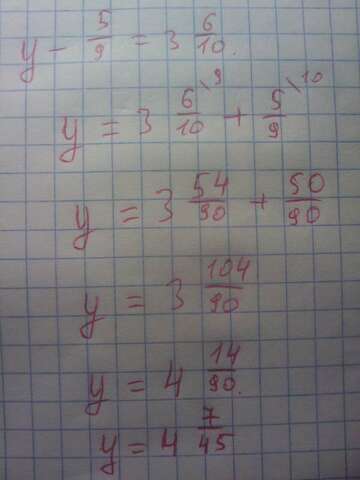 y - 5/9 = 3 6/10.
y = 3 6/10 \9 + 5/9 \10
y = 3 54/90 + 50/90
y = 3 104/90
y = 4 14/90.
y = 4 7/45